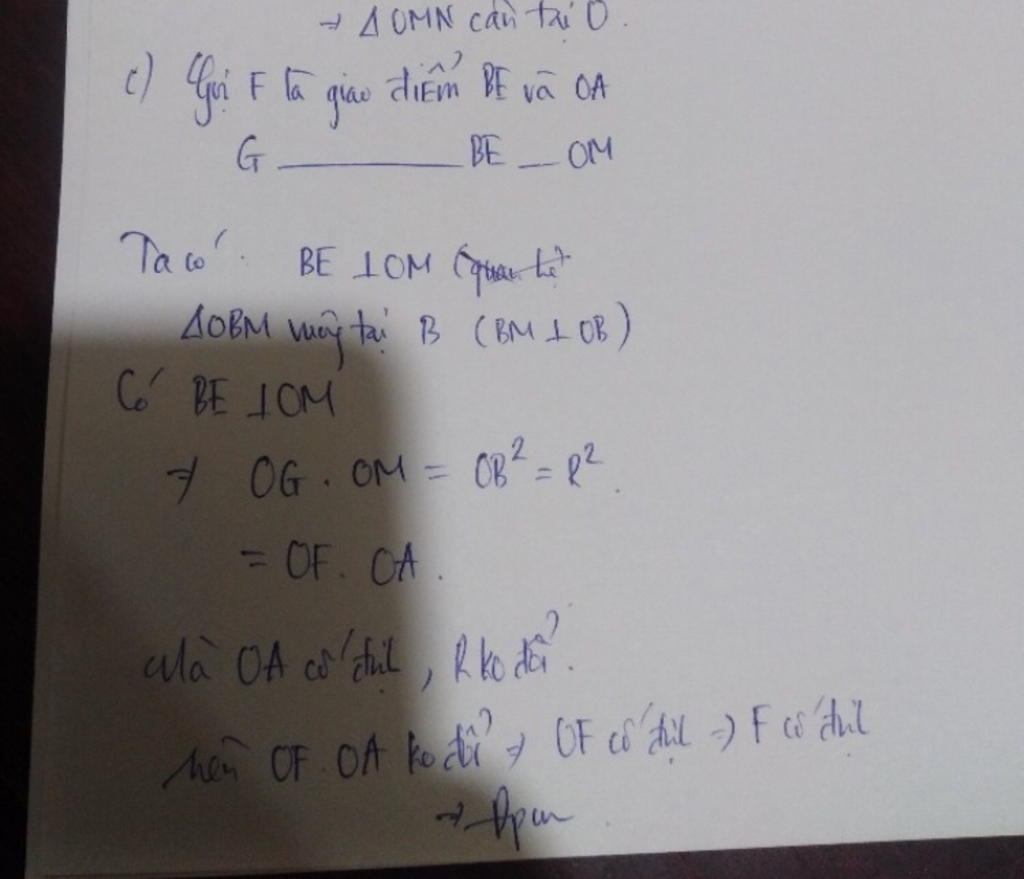 → ΔOMN cân tại O.
c) Gọi F là giao điểm BE và OA
G ———— BE — OM
Ta có: BE ⊥ OM (quan hệ
ΔOBM vuông tại B (BM ⊥ OB)
Có BE ⊥ OM
⇒ OG . OM = OB² = R².
= OF . OA .
Mà OA cố định, R ko đổi.
nên OF . OA ko đổi ⇒ OF cố định ⇒ F cố định
→ Đpcm